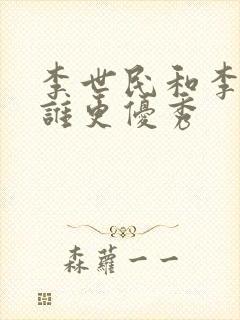 李世民和李
誰更優秀
森蘿一一